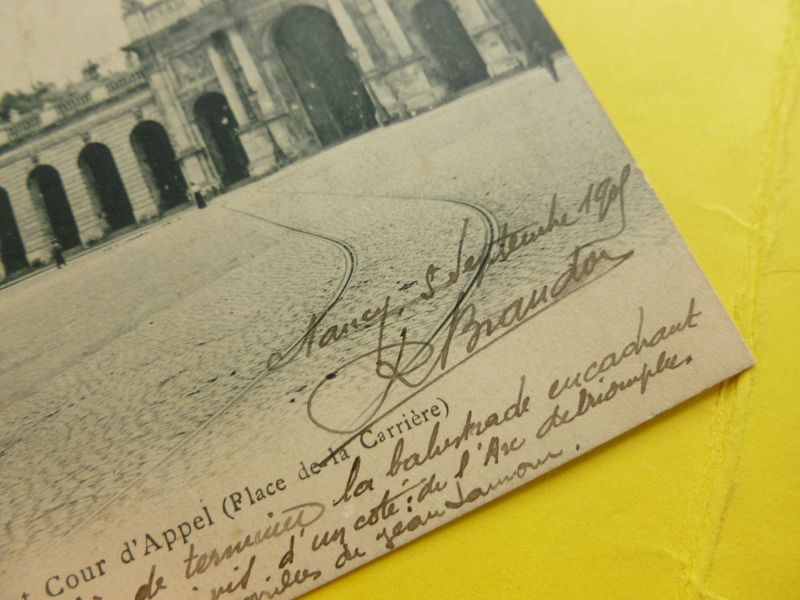 Nancy, 5 Septembre 1905
Brandon
t Cour d'Appel (Place de la Carrière)
de terminer la balustrade encadrant
d'un coté: de l'Arc de triomphe.
de Jean Lamour.